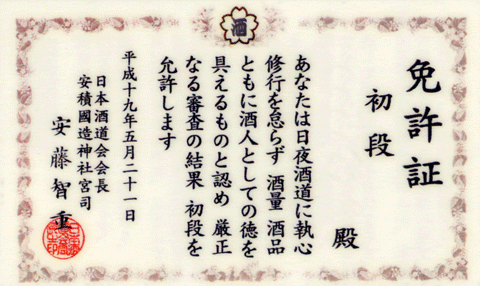 酒
免許証
初段
殿
あなたは日夜酒道に執心
修行を怠らず 酒量 酒品
ともに酒人としての徳を
具えるものと認め 厳正
なる審査の結果 初段を
允許します
平成十九年五月二十一日
日本酒道会会長
安積國造神社宮司
安藤智重